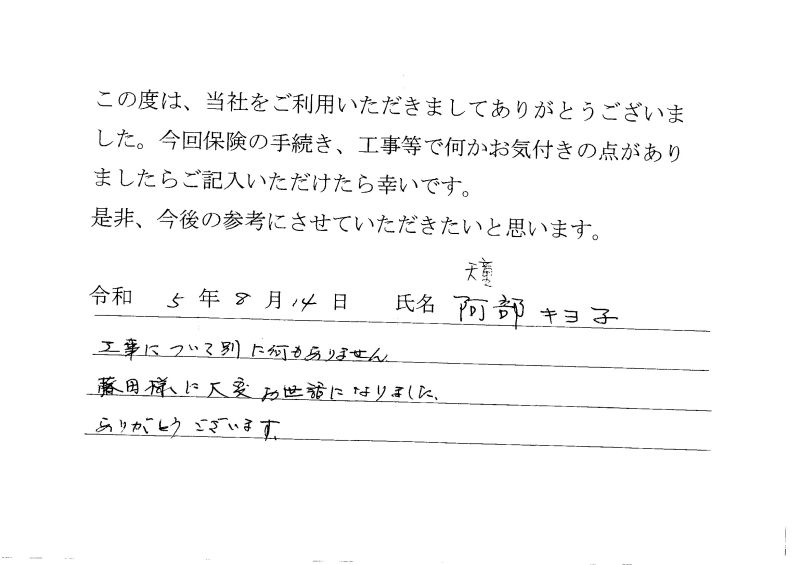 この度は、当社をご利用いただきましてありがとうございま
した。今回保険の手続き、工事等で何かお気付きの点があり
ましたらご記入いただけたら幸いです。
是非、今後の参考にさせていただきたいと思います。
天童
令和 5 年 8 月 14 日 氏名 阿部 キヨ子
工事について別に何もありません
藤田様に大変お世話になりました、
ありがとうございます。